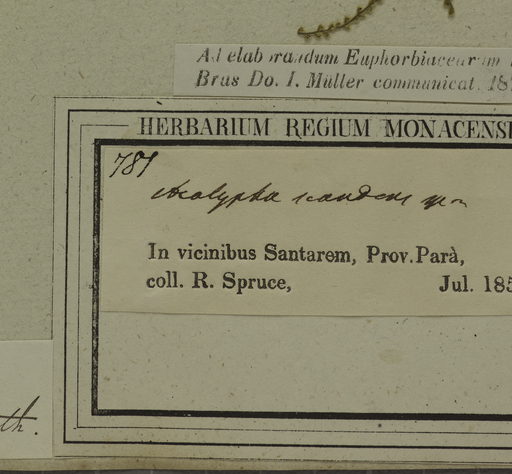 Ad elaborandum Euphorbiacearum
Bras Do. I. Müller communicat. 18
HERBARIUM REGIUM MONACENS
781
Acalypha scandens
In vicinibus Santarem, Prov. Parà,
coll. R. Spruce, Jul. 185
th.